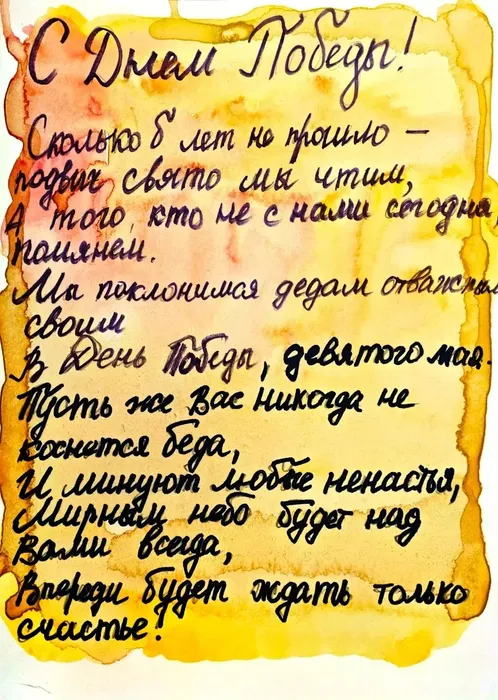 С Днем Победы!
Сколько б лет не прошло –
подвиг свято мы чтим,
А того, кто не с нами сегодня,
помянем.
Мы поклонимся дедам отважным
своим
В День Победы, девятого мая.
Пусть же Вас никогда не
коснется беда,
И минуют любые ненастья,
Мирным небо будет над
Вами всегда,
Впереди будет ждать только
счастье!